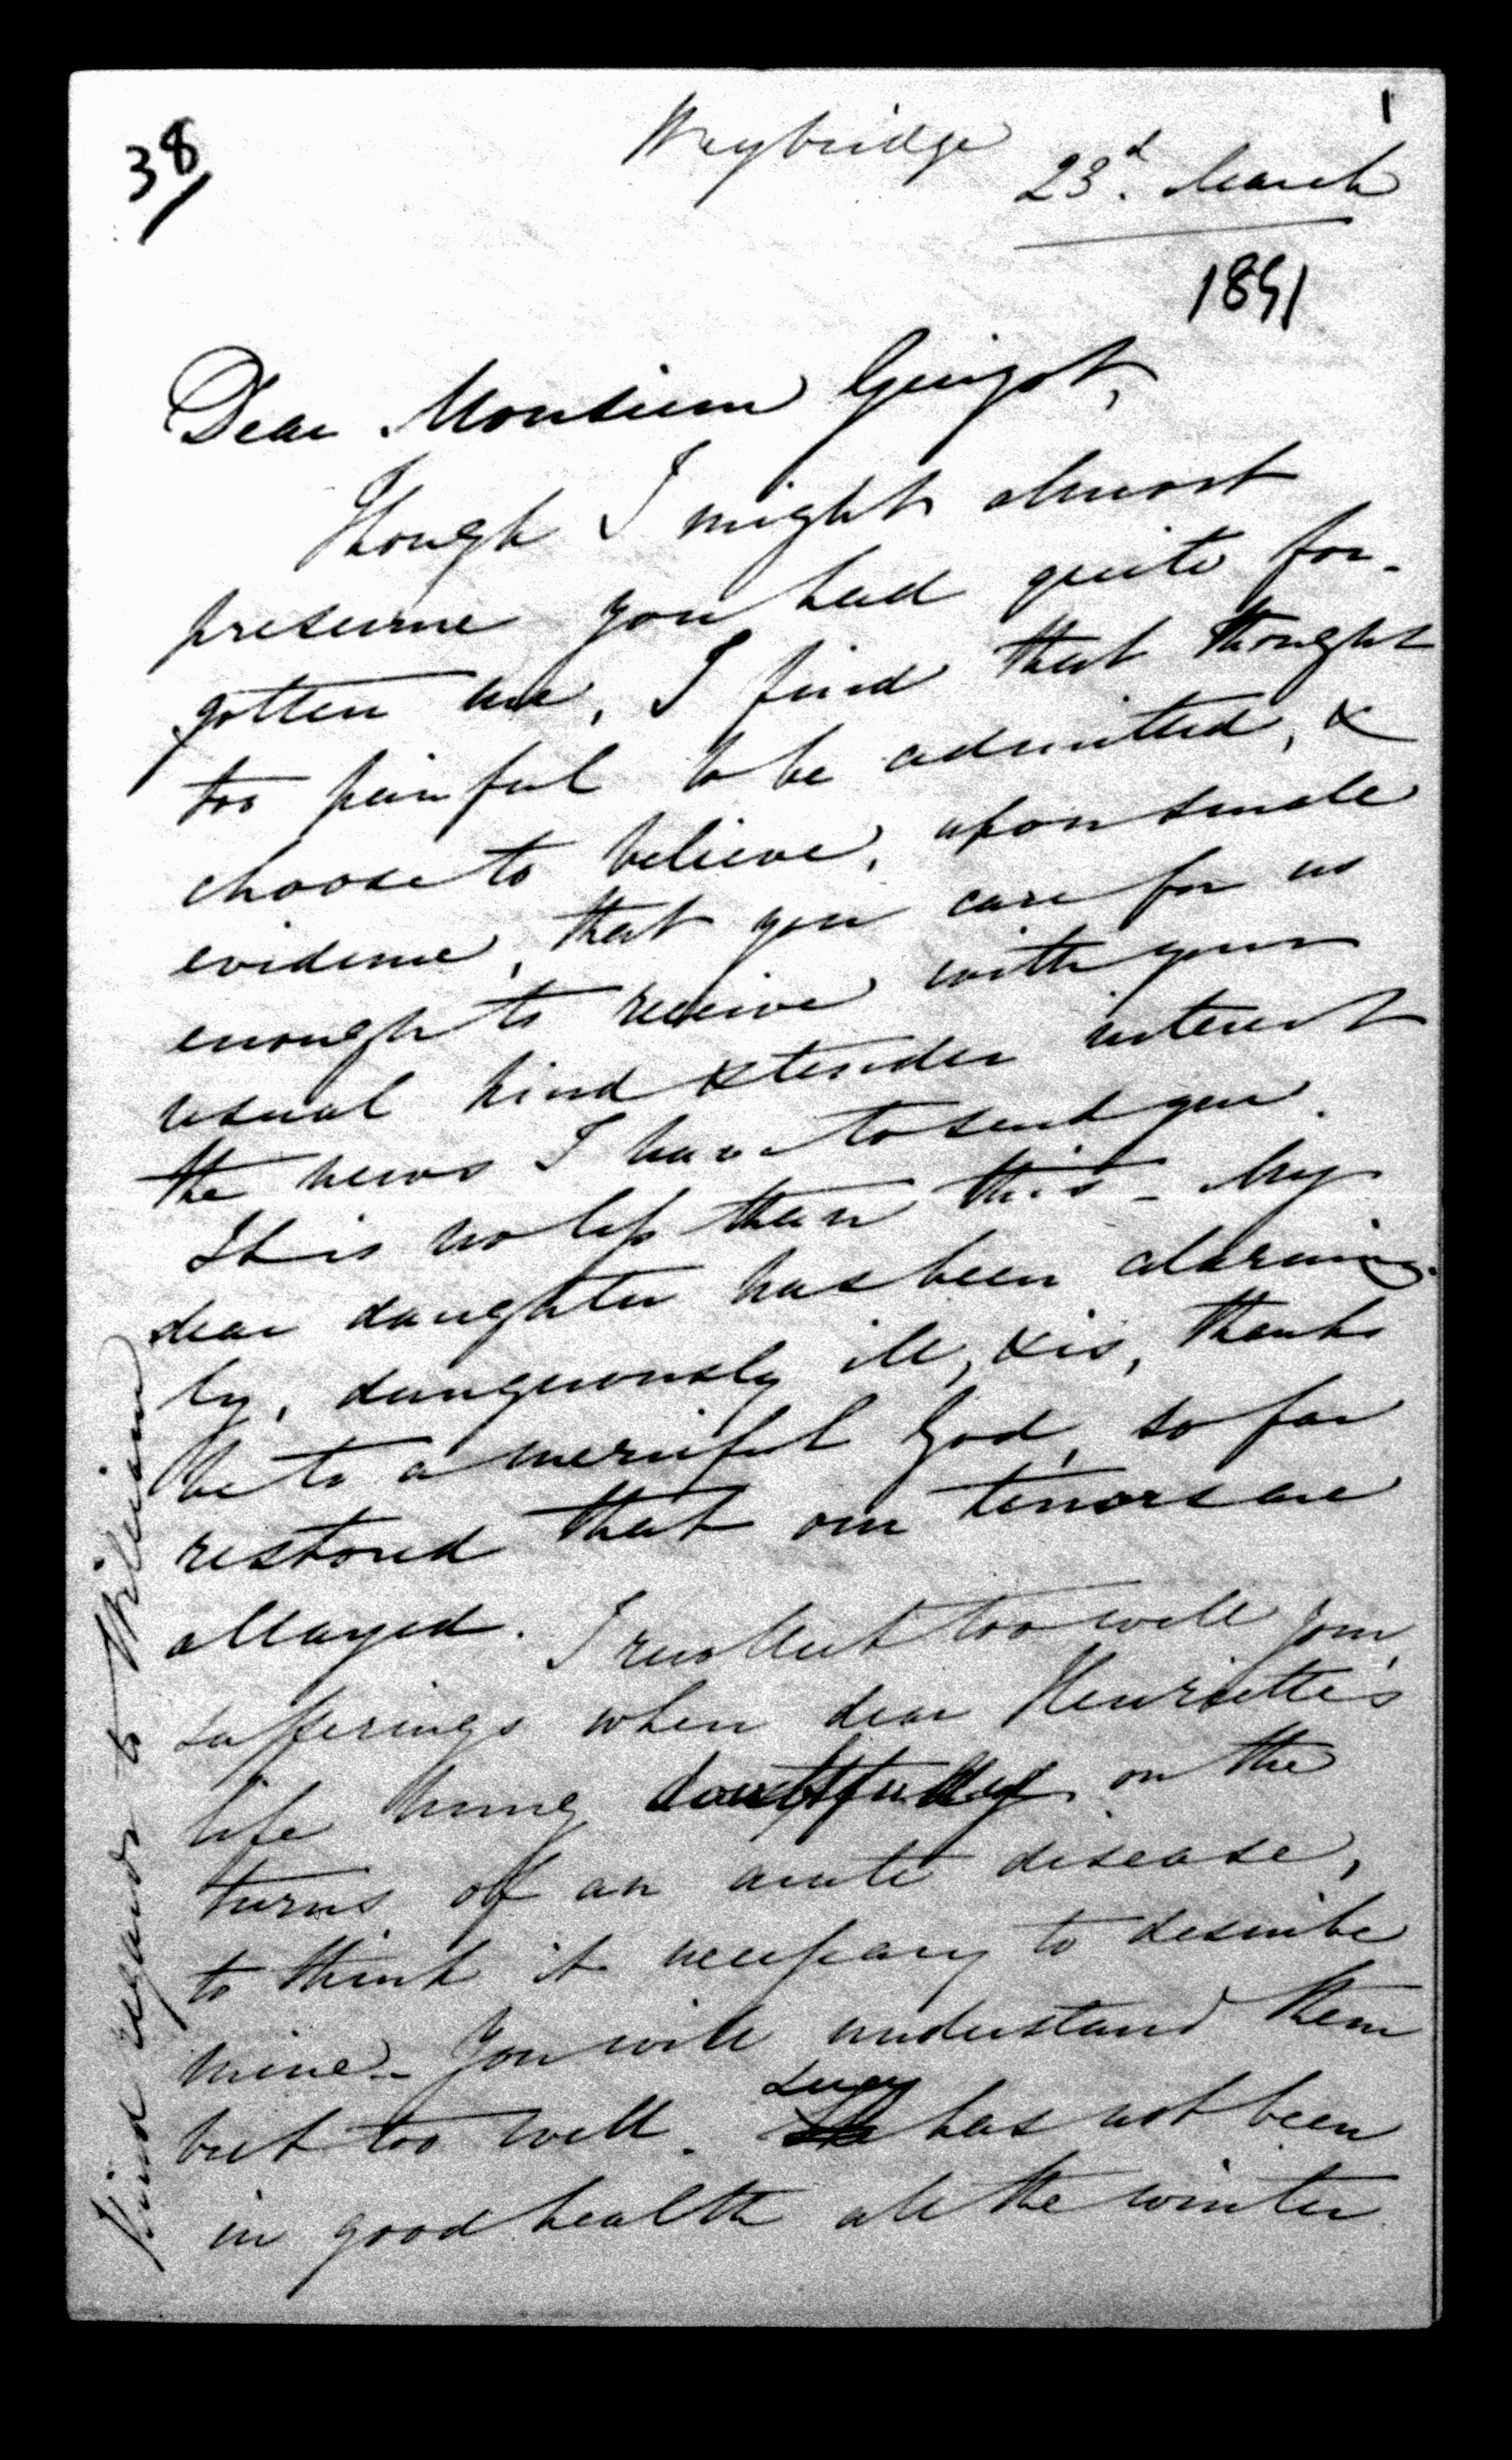 38
1
Weybridge
23d. March
1851
Dear Monsieur Guizot,
Though I might almost
presume you had quite for-
gotten me, I find that thought
too painful to be admitted, &
choose to believe, upon small
evidence, that you care for us
enough to receive with your
usual kind & tender interest
the news I have to send you.
It is no less than this - My
dear daughter has been alarming-
ly, dangerously ill, & is, thanks
be to a merciful God, so far
restored that our terrors are
allayed. I recollect too well your
sufferings when dear Henriette's
life hung doubtfully on the
turns of an acute disease,
to think it necessary to describe
mine - You will understand them
but too well. She Lucy has not been
in good health all the winter
Kind regards to William